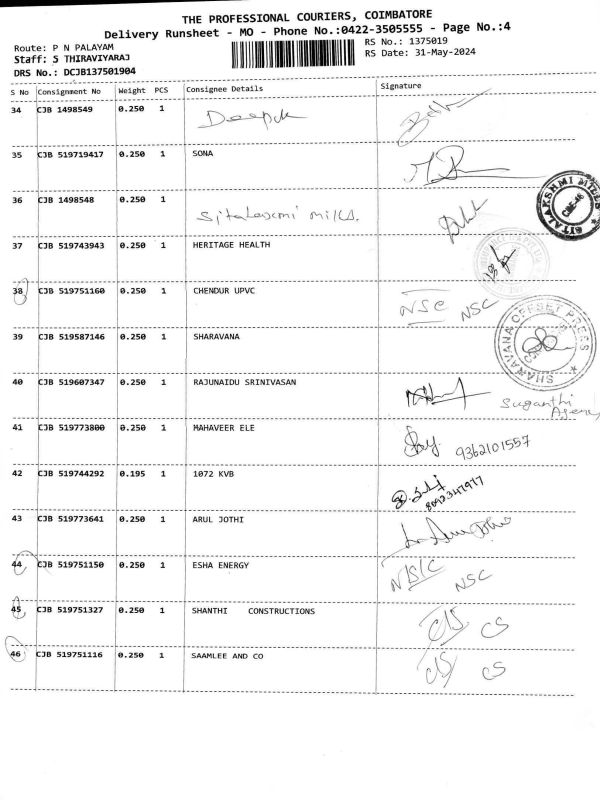 THE PROFESSIONAL COURIERS, COIMBATORE
Delivery Runsheet - MO - Phone No.:0422-3505555 - Page No.:4
Route: P N PALAYAM
RS No.: 1375019
Staff: S THIRAVIYARAJ
RS Date: 31-May-2024
DRS No.: DCJB137501904
S No Consignment No Weight PCS Consignee Details Signature
34 CJB 1498549 0.250 1 Deepak
35 CJB 519719417 0.250 1 SONA
36 CJB 1498548 0.250 1 Sitalaxmi mills.
SITALAKSHMI MILLS
37 CJB 519743943 0.250 1 HERITAGE HEALTH
38 CJB 519751160 0.250 1 CHENDUR UPVC NSC NSC
39 CJB 519587146 0.250 1 SHARAVANA
SHARAVANA OFFSET PRESS
40 CJB 519607347 0.250 1 RAJUNAIDU SRINIVASAN
Suganthi
Agency
41 CJB 519773800 0.250 1 MAHAVEER ELE 9362101557
42 CJB 519744292 0.195 1 1072 KVB
43 CJB 519773641 0.250 1 ARUL JOTHI
44 CJB 519751150 0.250 1 ESHA ENERGY NSC NSC
45 CJB 519751327 0.250 1 SHANTHI CONSTRUCTIONS CS CS
46 CJB 519751116 0.250 1 SAAMLEE AND CO CS CS